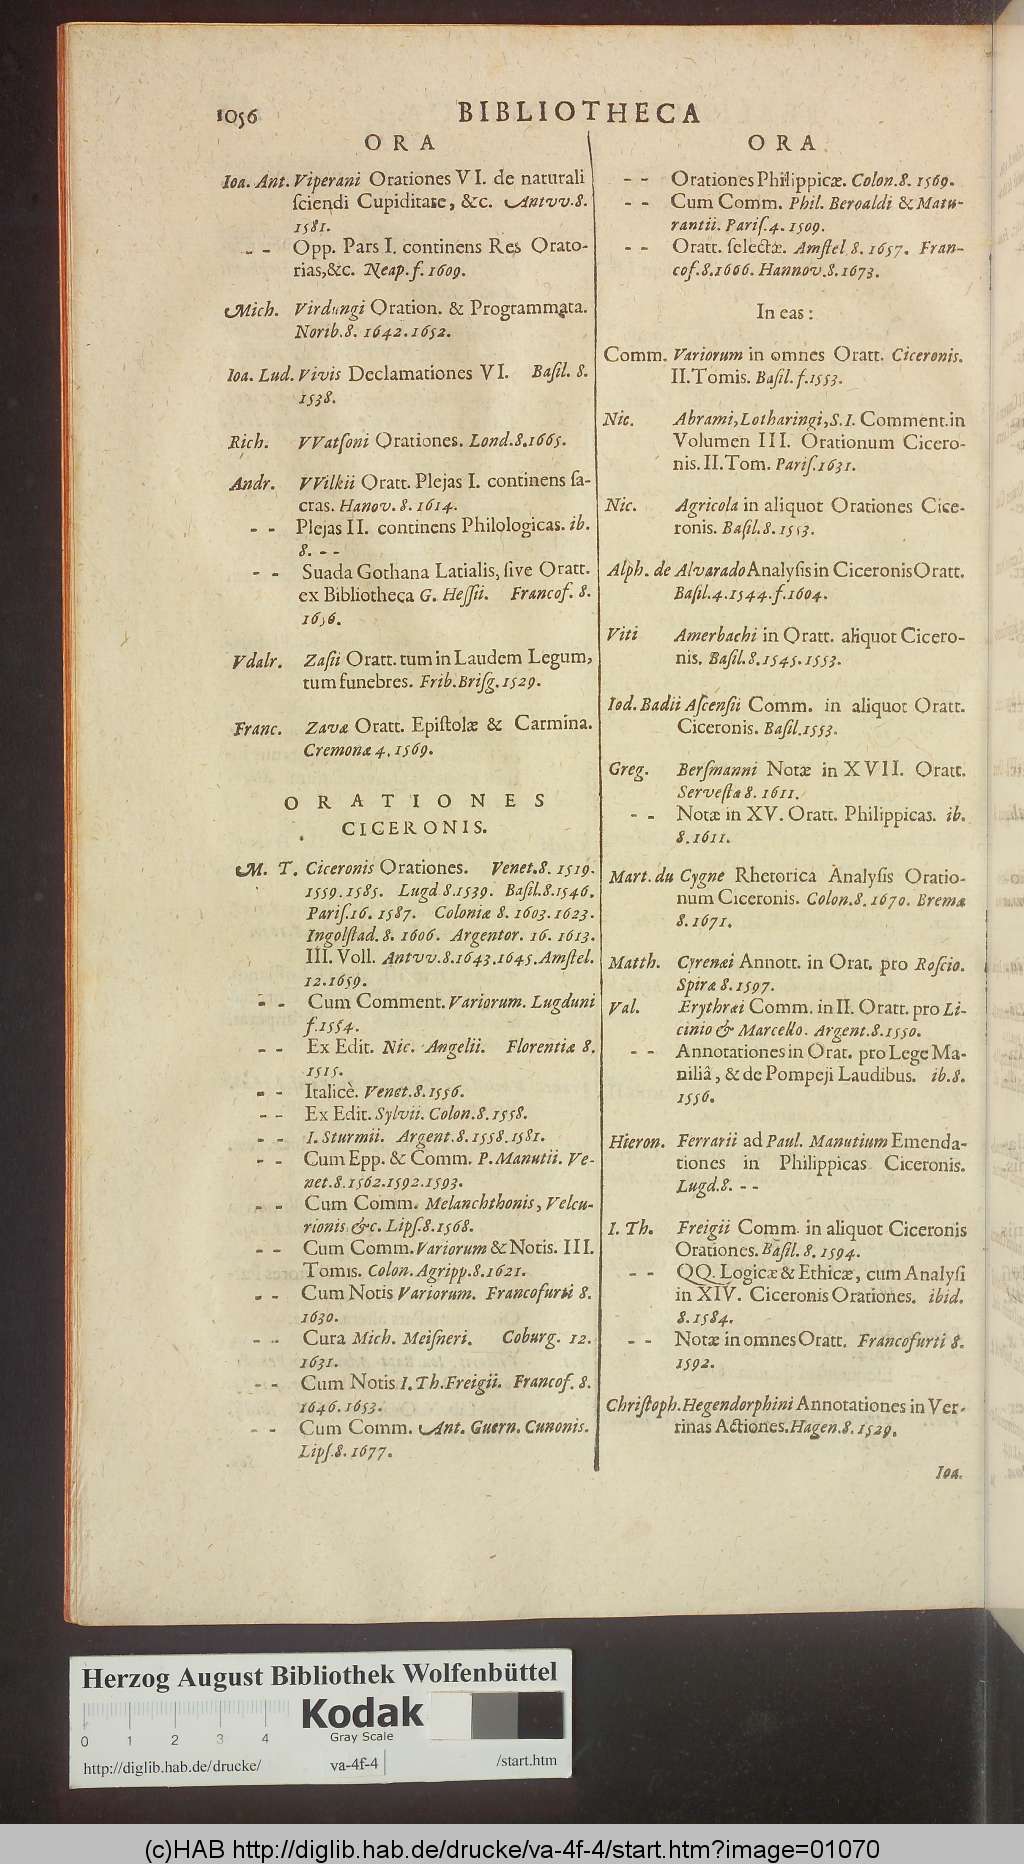 1056
BIBLIOTHECA
ORA
Ioa. Ant. Viperani Orationes VI. de naturali
ſciendi Cupiditate, &c. Antvv. 8.
1581.
- - Opp. Pars I. continens Res Orato-
rias, &c. Neap. f. 1609.
Mich. Virdungi Oration. & Programmata.
Norib. 8. 1642. 1652.
Ioa. Lud. Vivis Declamationes VI. Baſil. 8.
1538.
Rich. VVatſoni Orationes. Lond. 8. 1665.
Andr. VVilkii Oratt. Plejas I. continens ſa-
cras. Hanov. 8. 1614.
- - Plejas II. continens Philologicas. ib.
8. - -
- - Suada Gothana Latialis, ſive Oratt.
ex Bibliotheca G. Heſſii. Francof. 8.
1656.
Vdalr. Zaſii Oratt. tum in Laudem Legum,
tum funebres. Frib. Briſg. 1529.
Franc. Zavæ Oratt. Epiſtolæ & Carmina.
Cremonæ 4. 1569.
ORATIONES
CICERONIS.
M. T. Ciceronis Orationes. Venet. 8. 1519.
1559. 1585. Lugd 8. 1539. Baſil. 8. 1546.
Pariſ. 16. 1587. Coloniæ 8. 1603. 1623.
Ingolſtad. 8. 1606. Argentor. 16. 1613.
III. Voll. Antvv. 8. 1643. 1645. Amſtel.
12. 1659.
- - Cum Comment. Variorum. Lugduni
f. 1554.
- - Ex Edit. Nic. Angelii. Florentiæ 8.
1515.
- - Italicè. Venet. 8. 1556.
- - Ex Edit. Sylvii. Colon. 8. 1558.
- - I. Sturmii. Argent. 8. 1558. 1581.
- - Cum Epp. & Comm. P. Manutii. Ve-
net. 8. 1562. 1592. 1593.
- - Cum Comm. Melanchthonis, Velcu-
rionis &c. Lipſ. 8. 1568.
- - Cum Comm. Variorum & Notis. III.
Tomis. Colon. Agripp. 8. 1621.
- - Cum Notis Variorum. Francofurti 8.
1630.
- - Cura Mich. Meiſneri. Coburg. 12.
1631.
- - Cum Notis I. Th. Freigii. Francof. 8.
1646. 1653.
- - Cum Comm. Ant. Guern. Cunonis.
Lipſ. 8. 1677.
ORA
- - Orationes Philippicæ. Colon. 8. 1569.
- - Cum Comm. Phil. Beroaldi & Matu-
rantii. Pariſ. 4. 1509.
- - Oratt. ſelectæ. Amſtel 8. 1657. Fran-
cof. 8. 1666. Hannov. 8. 1673.
In eas:
Comm. Variorum in omnes Oratt. Ciceronis.
II. Tomis. Baſil. f. 1553.
Nic. Abrami, Lotharingi, S. I. Comment. in
Volumen III. Orationum Cicero-
nis. II. Tom. Pariſ. 1631.
Nic. Agricola in aliquot Orationes Cice-
ronis. Baſil. 8. 1553.
Alph. de Alvarado Analyſis in Ciceronis Oratt.
Baſil. 4. 1544. f. 1604.
Viti Amerbachi in Oratt. aliquot Cicero-
nis. Baſil. 8. 1545. 1553.
Iod. Badii Aſcenſii Comm. in aliquot Oratt.
Ciceronis. Baſil. 1553.
Greg. Berſmanni Notæ in XVII. Oratt.
Serveſtæ 8. 1611.
- - Notæ in XV. Oratt. Philippicas. ib.
8. 1611.
Mart. du Cygne Rhetorica Analyſis Oratio-
num Ciceronis. Colon. 8. 1670. Bremæ
8. 1671.
Matth. Cyrenæi Annott. in Orat. pro Roſcio.
Spiræ 8. 1597.
Val. Erythræi Comm. in II. Oratt. pro Li-
cinio & Marcello. Argent. 8. 1550.
- - Annotationes in Orat. pro Lege Ma-
niliâ, & de Pompeji Laudibus. ib. 8.
1556.
Hieron. Ferrarii ad Paul. Manutium Emenda-
tiones in Philippicas Ciceronis.
Lugd. 8. - -
I. Th. Freigii Comm. in aliquot Ciceronis
Orationes. Baſil. 8. 1594.
- - QQ. Logicæ & Ethicæ, cum Analyſi
in XIV. Ciceronis Orationes. ibid.
8. 1584.
- - Notæ in omnes Oratt. Francofurti 8.
1592.
Chriſtoph. Hegendorphini Annotationes in Ver-
rinas Actiones. Hagen. 8. 1529.
Ioa.
Herzog August Bibliothek Wolfenbüttel
Kodak
Gray Scale
0 1 2 3 4
http://diglib.hab.de/drucke/ va-4f-4 /start.htm
(c)HAB http://diglib.hab.de/drucke/va-4f-4/start.htm?image=01070